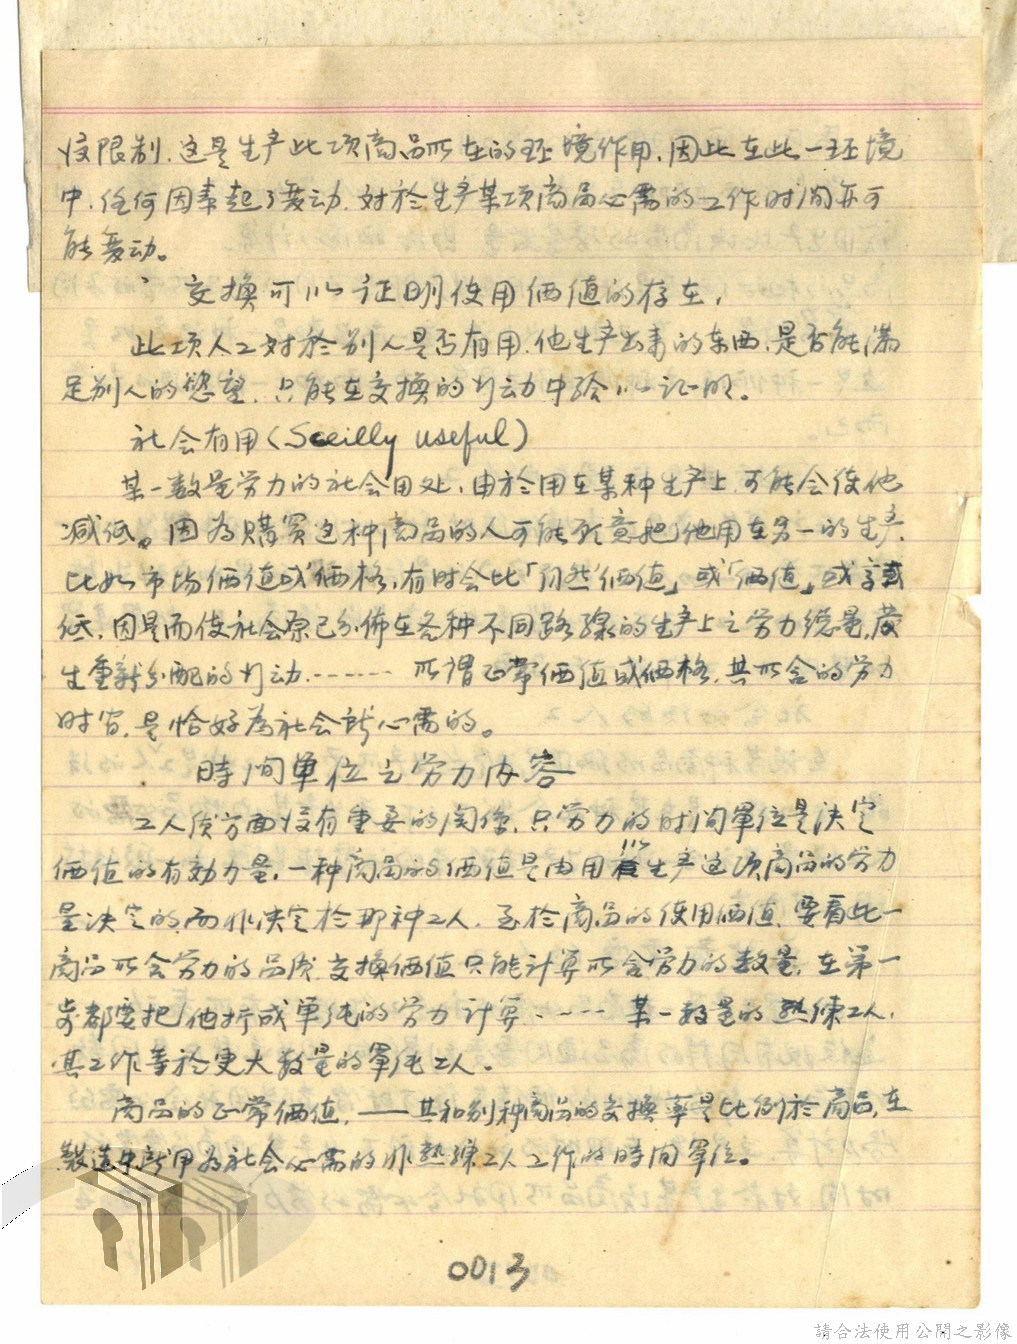 没限制．这是生产此项商品所在的环境作用，因此在此一环境
中．任何因素起了变动．对於生产某项商品必需的工作时间亦可
能变动。
交换可以证明使用価值的存在，
此项人工对於别人是否有用．他生产出来的东西．是否能满
足别人的慾望．只能在交换的行动中给以证明。
社会有用（Sceilly useful）
某一数量劳力的社会用处，由於用在某种生产上．可能会使他
减低。因为购买这种商品的人可能愿意把他用在另一的生产．
比如市场価值或価格，有时会比「自然価值」或「価值」或高或
低．因是而使社会原已分佈在各种不同路線的生产上之劳力總量，發
生重新分配的行动．------ 所谓正常価值或価格．其所含的劳力
时间．是恰好為社会所必需的。
時间单位之劳力内容
工人质方面没有重要的関係．只劳力的时间單位是决定
価值的有効力量，一种商品的価值是由用以生产这项商品的劳力
量决定的，而非决定於那种工人．至於商品的使用価值．要看此一
商品所含劳力的品质，交换価值只能计算所含劳力的数量，在第一
步都要把他折成單纯的劳力计算---- 某一数量的熟練工人．
其工作等於更大数量的單纯工人。
商品的正常価值．——其和别种商品的交换率是比例於商品在
製造中所用為社会必需的非熟練工人工作的時间單位。
0013
請合法使用公開之影像